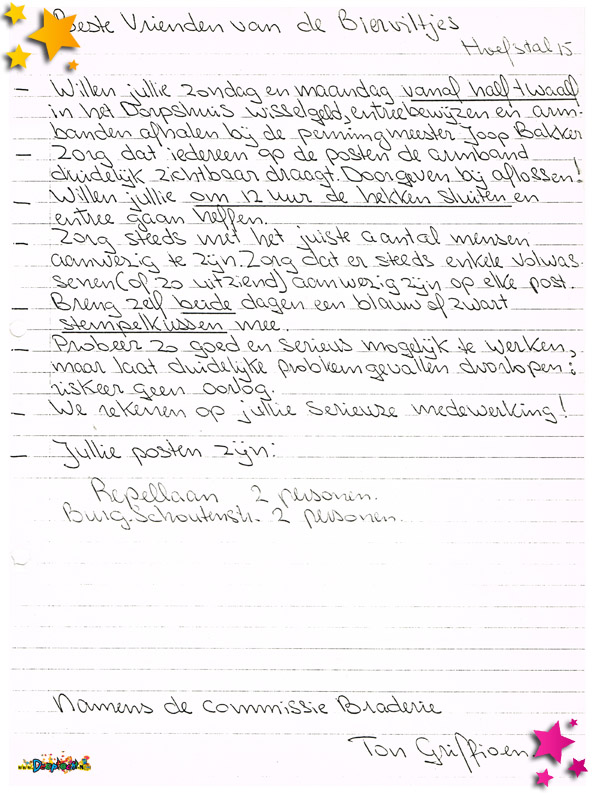 Beste Vrienden van de Bierviltjes
Hoefstal 15
- Willen jullie zondag en maandag vanaf half twaalf
in het Dorpshuis wisselgeld, entreebewijzen en arm-
banden afhalen bij de penningmeester Joop Bakker
- Zorg dat iedereen op de posten de armband
duidelijk zichtbaar draagt. Doorgeven bij aflossen!
- Willen jullie om 12 uur de hekken sluiten en
entree gaan heffen.
- Zorg steeds met het juiste aantal mensen
aanwezig te zijn. Zorg dat er steeds enkele volwas-
senen (of zo uitziend) aanwezig zijn op elke post.
- Breng zelf beide dagen een blauw of zwart
stempelkussen mee.
- Probeer zo goed en serieus mogelijk te werken,
maar laat duidelijke probleemgevallen doorlopen:
riskeer geen oorlog.
- We rekenen op jullie serieuze medewerking!
- Jullie posten zijn:
Repellaan 2 personen.
Burg. Schoutenstr. 2 personen.
Namens de commissie Braderie
Ton Griffioen